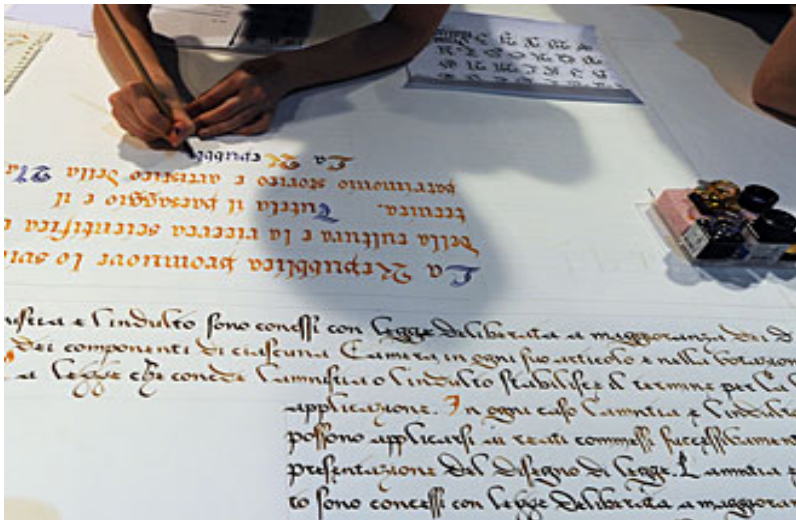 La Repubblica promuove lo svi
della cultura e la ricerca scientifica e
tecnica. Tutela il paesaggio e il
patrimonio storico e artistico della Na
La Repubb
e l'indulto sono concessi con legge deliberata a maggioranza dei d
dei componenti di ciascuna Camera in ogni suo articolo e nella votazion
a legge che concede l'amnistia o l'indulto stabilisce il termine per la
applicazione. In ogni caso l'amntia e l'indulto
possono applicarsi ai reati commessi successivament
presentazione del disegno di legge. L'amntia e
to sono concessi con legge deliberata a maggioran